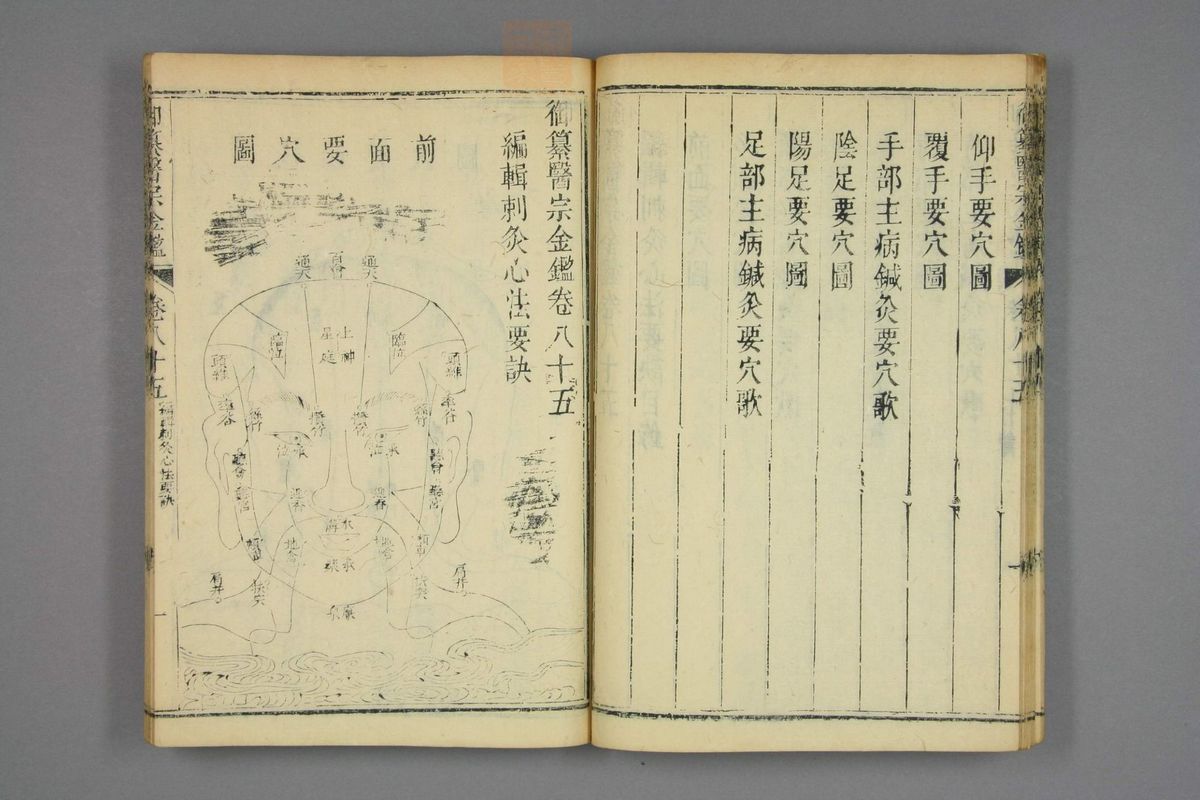 仰手要穴圖
覆手要穴圖
手部主病鍼灸要穴歌
陰足要穴圖
陽足要穴圖
足部主病鍼灸要穴歌
御纂醫宗金鑑卷八十五
編輯刺灸心法要訣
前面要穴圖
百會
通天
通天
上星
神庭
臨泣
臨泣
頭維
頭維
率谷
率谷
絲竹
絲竹
攢竹
攢竹
承泣
承泣
聽會
聽會
聽宮
聽宮
迎香
迎香
水溝
地倉
地倉
頰車
頰車
承漿
扶突
扶突
肩井
肩井
廉泉
御纂醫宗金鑑
卷八十五
編輯刺灸心法要訣
一
御纂醫宗金鑑
卷八十五